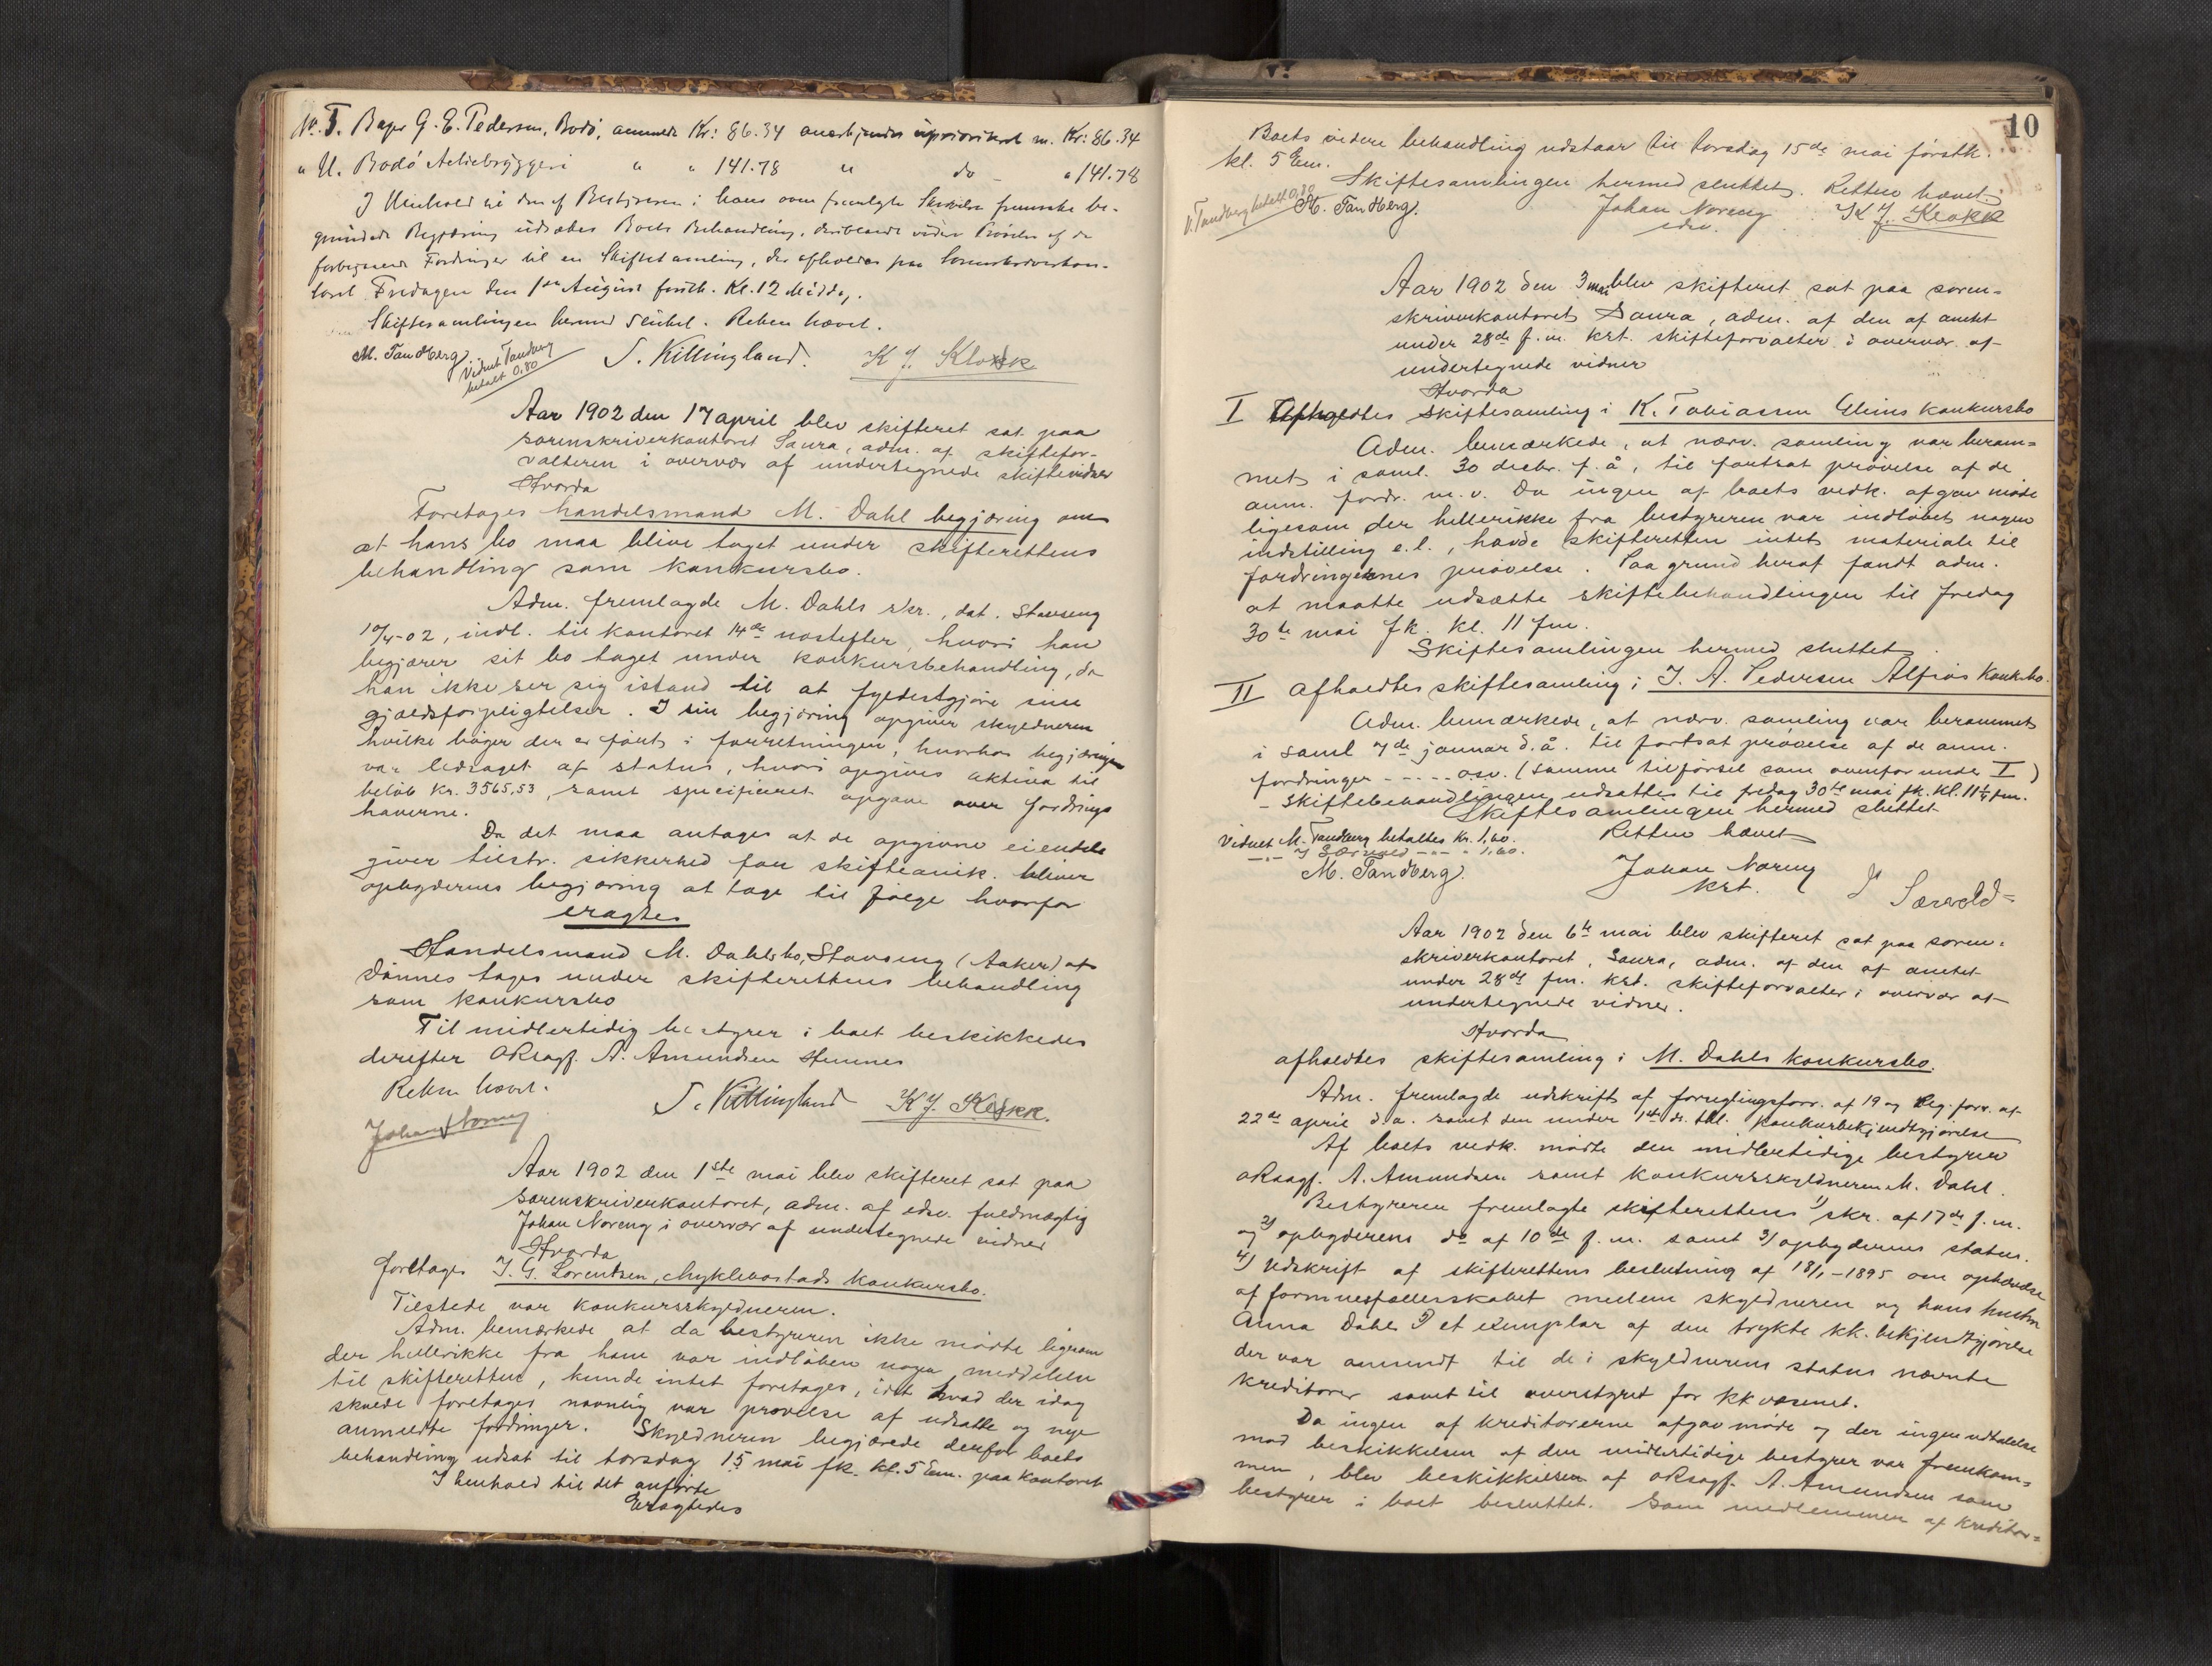 No. T. Bager G. E. Pedersen, Bodö, anmeldt Kr: 86.34 anerkjendes uprioritert m. Kr: 86.34
" U. Bodö Actiebryggeri " " 141.78 " do - " 141.78
I Henhold til den af Bestyreren i hans oven fremlagte Skrivelse fremsatte be-
grundede Begjæring udsættes Boets Behandling, deriblandt videre Prövelse af de
forbeg Fordringer til en Skiftesamling, der afholdes paa Sorenskriverkon-
toret Fredagen den 1ste August førstk. Kl. 12 Middag.
Skiftesamlingen hermed sluttet. Retten hævet.
M. Tandberg. S. Killingland. K J. Klokk
Vidnet Tandberg
betalt 0.80
Aar 1902 den 17 april blev skifteret sat paa
sorenskriverkontoret Saura, adm. af skiftefor-
valteren i overvær af undertegnede skiftevidner
Hvorda
Foretages handelsmand M. Dahl begjæring om
at hans bo maa blive taget under skifterettens
behandling som konkursbo.
Adm. fremlagde M. Dahls skr., dat. Stavseng
10/4-02, indl. til kontoret 14de næstefter, hvori han
begjærer sit bo taget under konkursbehandling, da
han ikke ser sig istand til at fyldestgjøre sine
gjældsforpligtelser. I sin begjæring opgiver skyldneren
hvilke bøger der er ført i forretningen, hvorhos begjæringen
var ledsaget af status, hvori opgives aktiva til
beløb kr. 3565,53, samt specificeret opgave over fordrings
haverne.
Da det maa antages at de opgivne eiendele
giver tilstr. sikkerhed for skifteomk. bliver
opbyderens begjæring at tage til følge hvorfor
eragtes
Handelsmand M. Dahls bo, Stavseng (Aaker) af
Dønnes tages under skifterettens behandling
som konkursbo
Til midlertidig bestyrer i boet beskikkedes
derefter oRsagf. A. Amundsen Hemnes
Retten hævet.
Johan Noreng S. Killingland K J. Klokk.
Aar 1902 den 1ste mai blev skifteret sat paa
sorenskriverkontoret, adm. af edsv. fuldmægtig
Johan Noreng i overvær af undertegnede vidner
Hvorda
foretages J. G. Lorentsen, Myklebostads konkursbo.
Tilstede var konkursskyldneren.
Adm. bemærkede at da bestyreren ikke mødte ligesom
der hellerikke fra ham var indløben nogen meddelelse
til skifteretten, kunde intet foretages, idet hvad der idag
skulde foretages navnlig var prøvelse af udsatte og nye
anmeldte fordringer. Skyldneren begjærede derfor boets
behandling udsat til torsdag 15 mai fk. kl. 5 Em. paa kontoret
I henhold til det anførte
Eragtedes
10
Boets videre behandling udstaar til torsdag 15de mai førstk.
kl. 5 Em.
Skiftesamlingen hermed sluttet. Retten hævet.
V. Tandberg betalt 0,80 M. Tandberg. Johan Noreng K J. Klokk
edsv.
Aar 1902 den 3 mai blev skifteret sat paa soren-
skriverkontoret Saura, adm. af den af amtet
under 28de f. m. kst. skifteforvalter i overvær af
undertegnede vidner
Hvorda
I Afholdtes skiftesamling i K. Tobiassen Gleins konkursbo
Adm. bemærkede, at nærv. samling var beram-
met i saml. 30 decbr. f. å, til fortsat prøvelse af de
anm. fordr. m. v. Da ingen af boets vedk. afgav møde
ligesom der hellerikke fra bestyreren var indløbet nogen
indstilling e. l., havde skifteretten intet materiale til
fordringernes prøvelse. Paa grund heraf fandt adm.
at maatte udsætte skiftebehandlingen til fredag
30te mai fk. kl. 11 fm.
Skiftesamlingen hermed sluttet.
II afholdtes skiftesamling i J. A. Pedersen Alfrøs konk.bo.
Adm. bemærkede, at nærv. samling var berammet
i saml 7de januar d. å. til fortsat prøvelse af de anm.
fordringer - - - - - osv. (samme tilførsel som ovenfor under I)
- skiftebehandlingen udsattes til fredag 30te mai fk. kl. 11 1/4 fm.
Skiftesamlingen hermed sluttet
Vidnet M. Tandberg betaltes kr. 1,60. Retten hævet
-"- J Sørvold -"- " 1,60.
M. Tandberg. Johan Noreng
kst. J Sørvold
Aar 1902 den 6te mai blev skifteret sat paa soren-
skriverkontoret, Saura, adm. af den af amtet
under 28de fm. kst. skifteforvalter i overvær af
undertegnede vidner.
Hvorda
afholdtes skiftesamling i M. Dahls konkursbo.
Adm. fremlagde udskrift af forseglingsforr. af 19 og Reg. forr. af
22de april d. a. samt den under 1ste ds. konkursbekjendtgjørelse
Af boets vedk. mødte den midlertidige bestyrer
oRsagf. A. Amundsen samt konkursskyldneren M. Dahl.
Bestyreren fremlagte skifterettens 1) skr. af 17de f. m.
og 2) opbyderens do af 10de f. m. samt 3) opbyderens status.
4) Udskrift af skifterettens beslutning af 18/1-1895 om ophævelse
af formuesfællesskabet mellem skyldneren og hans hustru
Anna Dahl 5) et exemplar af den trykte kk. bekjendtgjørelse
der var omsendt til de i skyldnerens status nævnte
kreditorer samt til overstyret for kkvæsenet.
Da ingen af kreditorerne afgav møde og der ingen udtalelse
mod beskikkelsen af den midlertidige bestyrer var fremkom-
men, blev beskikkelsen af oRsagf. A. Amundsen som
bestyrer i boet besluttet. Som medlemmer af kreditor-